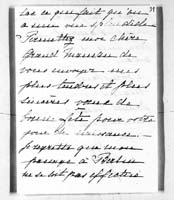 a une vue splendide
Permettez moi chère
Grand Maman de
vous envoyer mes
plus tendres et plus
sincères vœux de
bonne fête pour votre
jour de naissance.
Je regrette que mon
passage à Berlin
ne se soit pas effectué